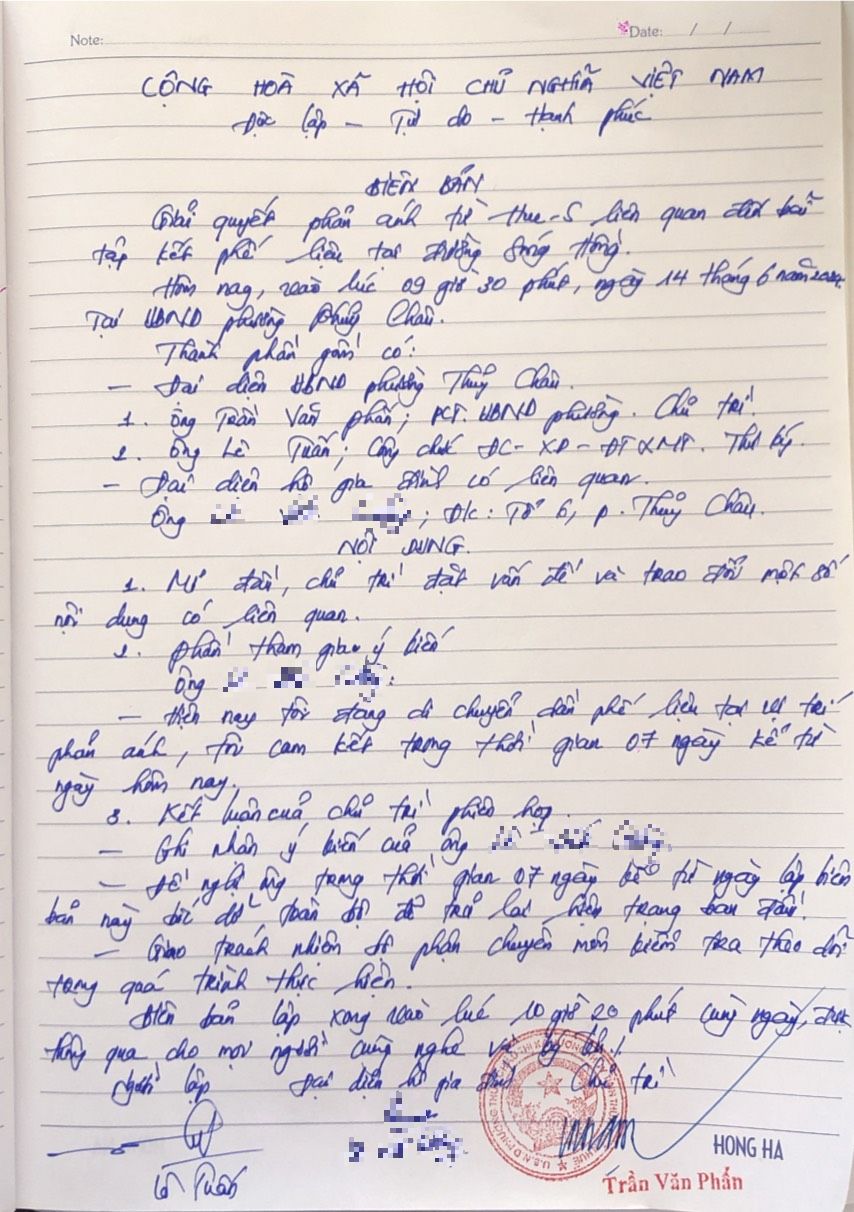 Note:
Date: / /
CỘNG HOÀ XÃ HỘI CHỦ NGHĨA VIỆT NAM
Độc lập - Tự do - Hạnh phúc
BIÊN BẢN
Giải quyết phản ánh từ Hue-S liên quan đến bãi
tập kết phế liệu tại đường Sóng Hồng.
Hôm nay, vào lúc 09 giờ 30 phút, ngày 14 tháng 6 năm
Tại UBND phường Thuỷ Châu.
Thành phần gồm có:
- Đại diện UBND phường Thuỷ Châu.
1. Ông Trần Văn Phấn; PCT. UBND phường. Chủ trì.
2. Ông Lê Tuấn; Công chức ĐC-XD-ĐT&MT. Thư ký.
- Đại diện hộ gia đình có liên quan.
Ông ; Đ/c: Tổ 6, p. Thuỷ Châu.
NỘI DUNG.
1. Mở đầu, chủ trì đặt vấn đề và trao đổi một số
nội dung có liên quan.
2. Phần tham gia ý kiến
Ông :
- Hiện nay tôi đang di chuyển dần phế liệu tại vị trí
phản ánh, tôi cam kết trong thời gian 07 ngày kể từ
ngày hôm nay.
3. Kết luận của chủ trì phiên họp.
- Ghi nhận ý kiến của ông
- Đề nghị ông trong thời gian 07 ngày kể từ ngày lập biên
bản này bốc dỡ toàn bộ để trả lại hiện trạng ban đầu.
- Giao trách nhiệm bộ phận chuyên môn kiểm tra theo dõi
trong quá trình thực hiện.
Biên bản lập xong vào lúc 10 giờ 20 phút cùng ngày, được
thông qua cho mọi người cùng nghe và ký tên!
Người lập Đại diện hộ gia đình Chủ trì
HONG HA
Lê Tuấn
Trần Văn Phấn